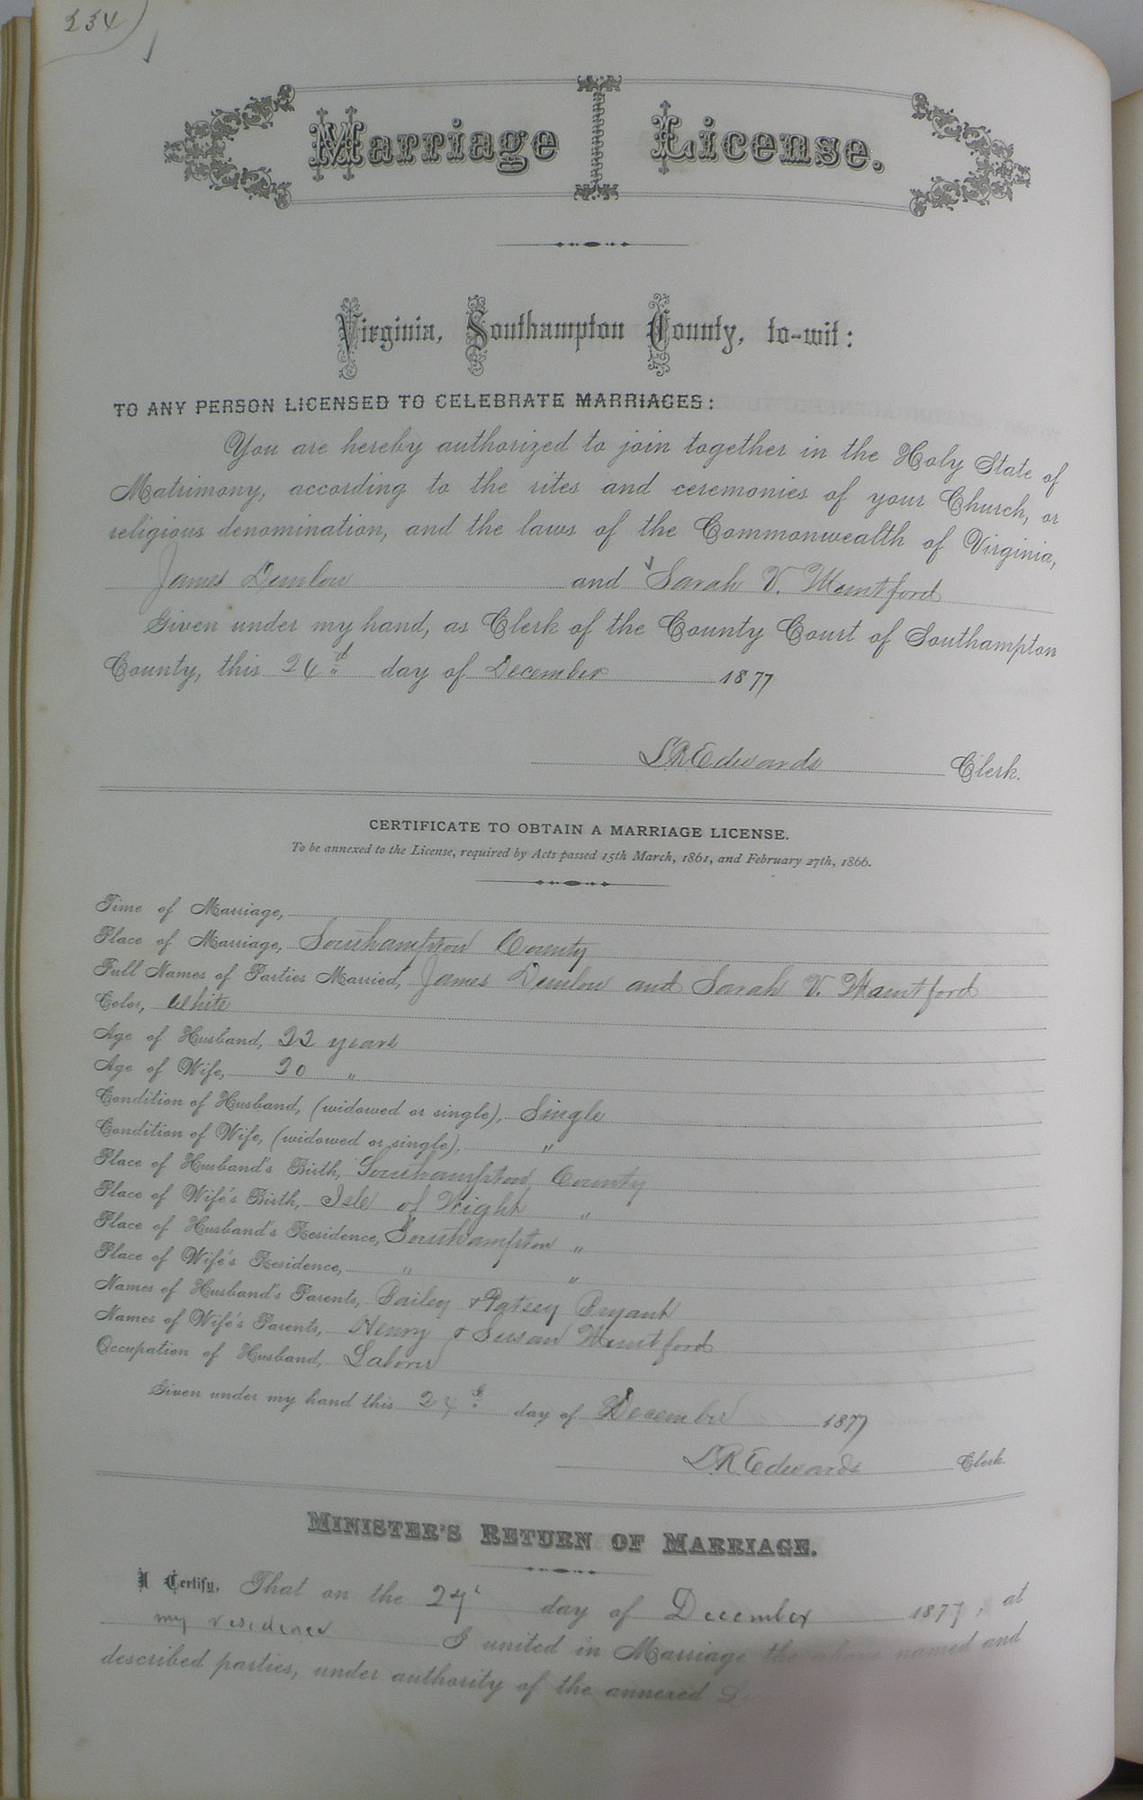 234
Marriage License.
Virginia, Southampton County, to-wit:
TO ANY PERSON LICENSED TO CELEBRATE MARRIAGES:
You are hereby authorized to join together in the Holy State of
Matrimony, according to the rites and ceremonies of your Church, or
religious denomination, and the laws of the Commonwealth of Virginia,
James Denlow and Sarah V. Mountford
Given under my hand, as Clerk of the County Court of Southampton
County, this 24 day of December 1877
L R Edwards Clerk.
CERTIFICATE TO OBTAIN A MARRIAGE LICENSE.
To be annexed to the License, required by Acts passed 15th March, 1861, and February 27th, 1866.
Time of Marriage,
Place of Marriage, Southampton County
Full Names of Parties Married, James Denlow and Sarah V. Mountford
Color, White
Age of Husband, 22 years
Age of Wife, 20 "
Condition of Husband, (widowed or single), Single
Condition of Wife, (widowed or single), "
Place of Husband's Birth, Southampton County
Place of Wife's Birth, Isle of Wight "
Place of Husband's Residence, Southampton "
Place of Wife's Residence, " "
Names of Husband's Parents, Bailey & Patsey Bryant
Names of Wife's Parents, Henry & Susan Mountford
Occupation of Husband, Laborer
Given under my hand this 24 day of December 1877
L. R. Edwards Clerk
MINISTER'S RETURN OF MARRIAGE.
I Certify, That on the day of December 1877, at
my residence I united in Marriage the above named and
described parties, under authority of the annexed